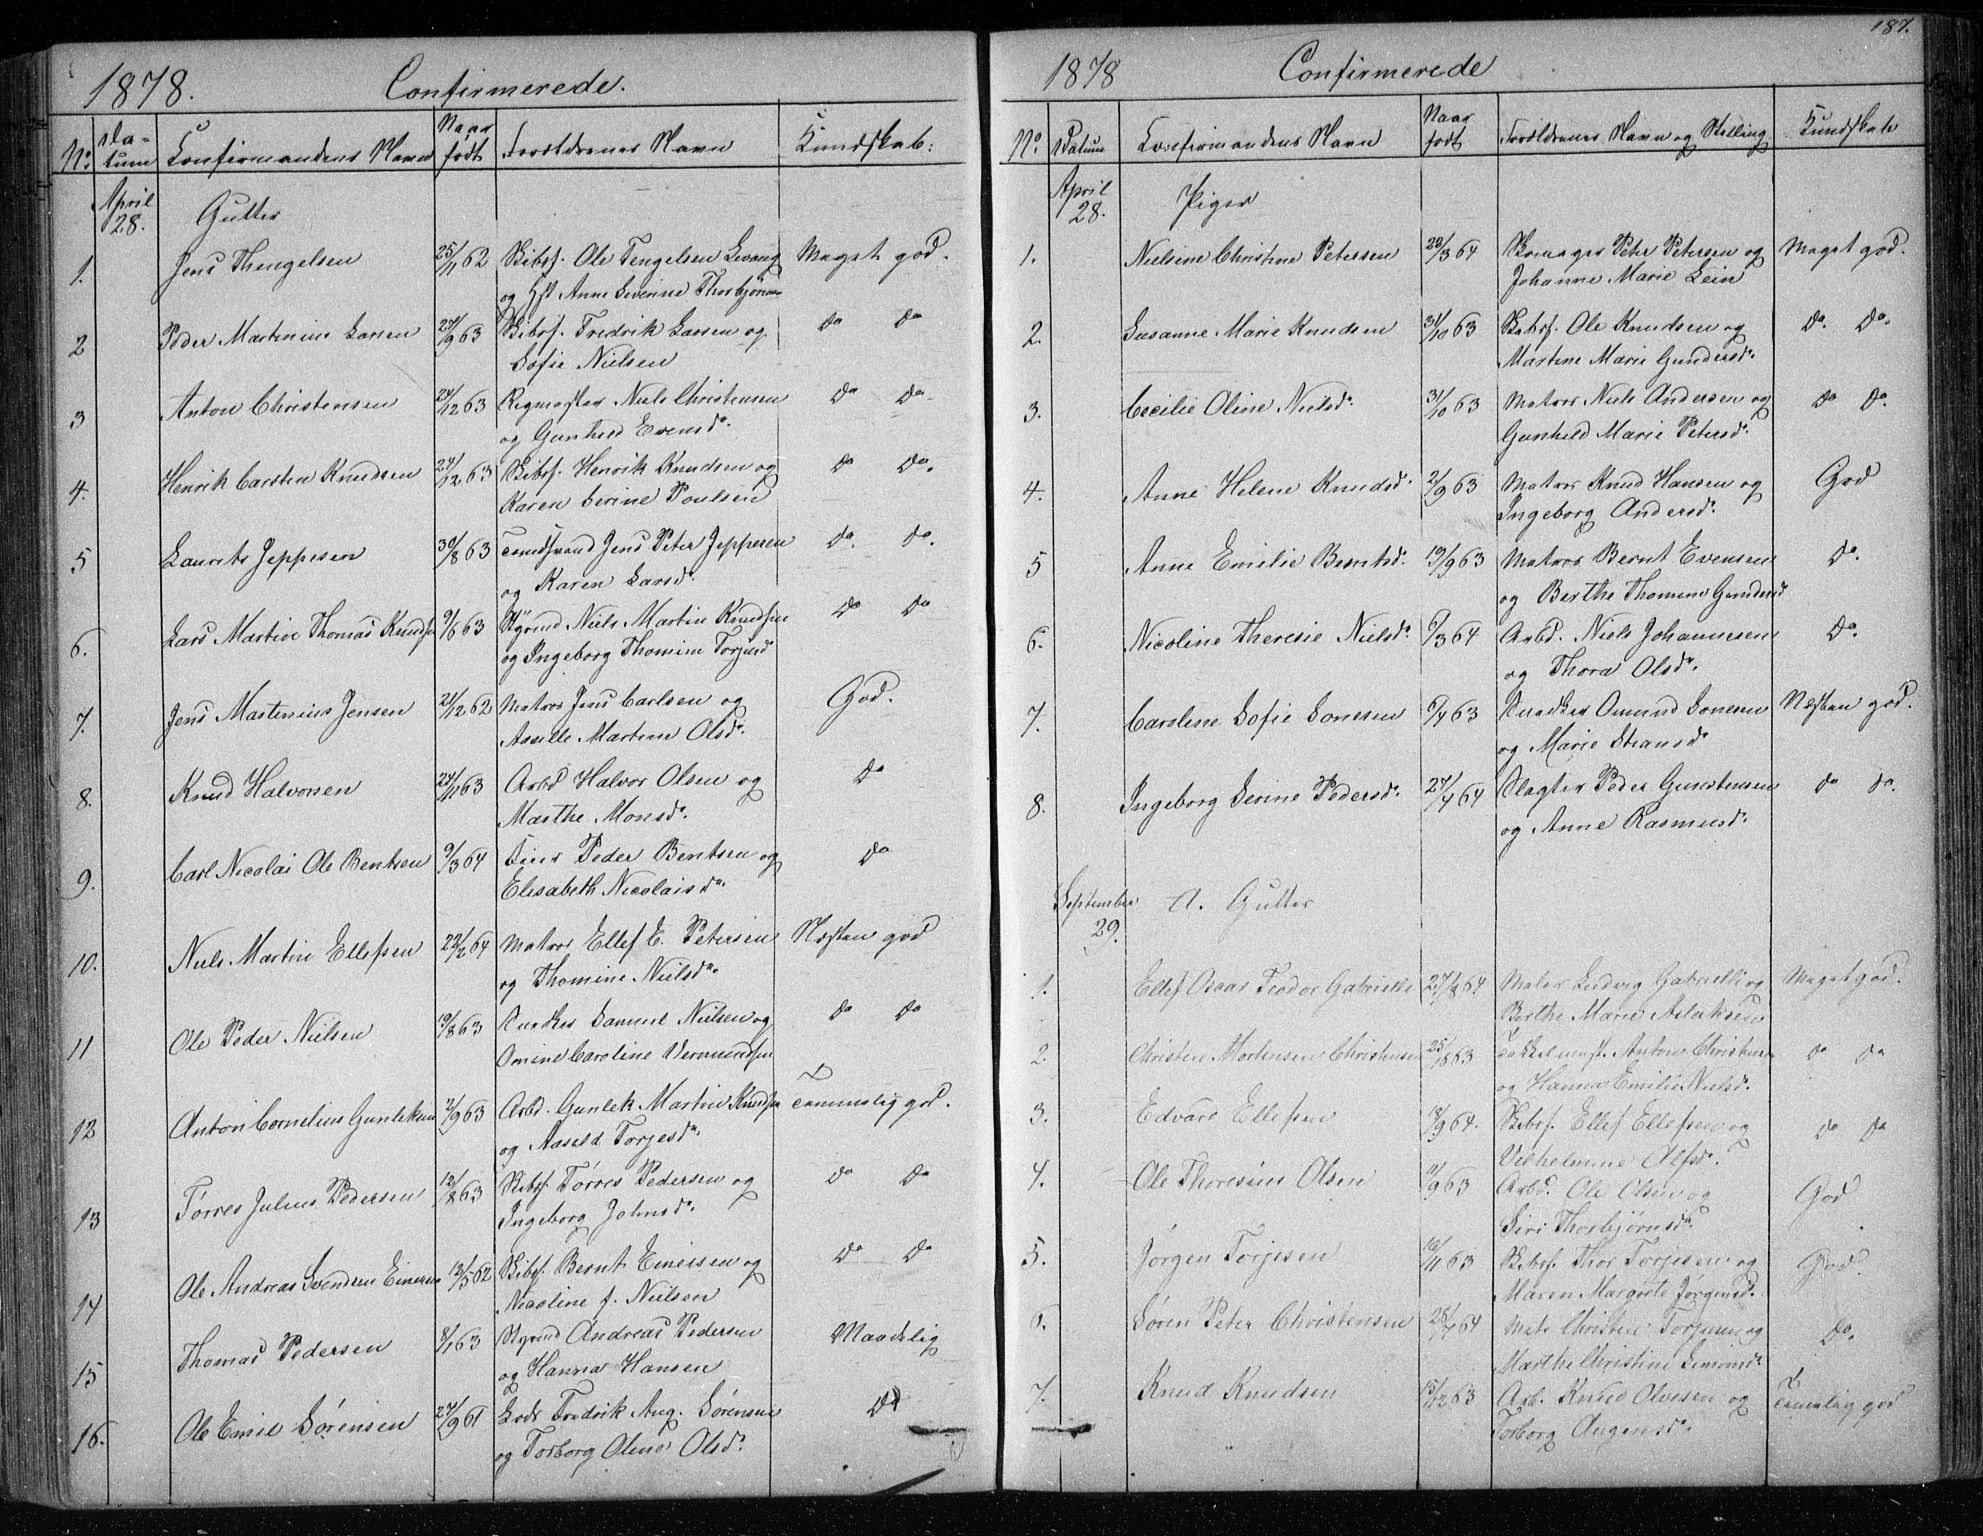 1878. Confirmerede.
No. Datum Confirmandens Navn Naar født Forældrenes Navn Kundskab:
April 28. Gutter
1. Jens Thengelsen 25/11 62 Skibsf. Ole Tengelsen Meget god.
og Anne Severine
2 Peder Martinius Larsen 9 63 Skibsf. Fredrik Larsen og Do Do
Sofie Nielsen
3 Anton Christensen 12 63 Niels Christensen Do Do
og Gunhild Evensd.
4. Henrik Carsten Knudsen 24/12 63 Skibsf. Henrik Knudsen og Do Do.
Karen Serine Poulsen
5 Laurits Jeppesen 30/8 63 Jens Peter Jeppesen Do. Do.
og Karen Larsd.
6. Lars Martin Thomas Knudsen 63 Styrmd Niels Martin Knudsen Do Do
og Ingeborg Thomine
7. Jens Martinius Jensen 12 62 Matros Jens Carlsen og God.
Martine Olsd.
8. Knud Halvorsen 24/11 63 Arbd Halvor Olsen og Do
Marthe Monsd.
9. Carl Nicolai Ole Bentsen 9/3 64 Peder Bentsen og Do
Elisabeth Nicolaisd.
10. Niels Martin Ellefsen 22/2 64 Matros Ellef E. Petersen Næsten god
og Thomine Nielsd.
11 Ole Peder Nielsen 8 63 Snedker Samuel Nielsen og Do Do
Omine Caroline
12 Anton Cornelius Gunleksen 9 63 Arbd. Gunlek Martin Knudsen Temmelig god.
og Aasild Torjesd.
13 Tórres Julius Pedersen 12/8 63 Skibsf. Tórres Pedersen og Do Do
Ingeborg Johnsd.
14 Ole Andreas Svendsen Einersen 12/5 62 Skibsf. Bernt Einersen og Do Do
Nicoline f. Nielsen
15 Thomas Pedersen 8/1 63 Styrmd Andreas Pedersen Maadelig
og Hanna Hansen
16. Ole Emil Sörensen 9 61 Lods Fredrik Aug. Sörensen Do
og Torborg Oline Olsd.
187.
1878 Confirmerede
No. Datum Confirmandens Navn Naar født Forældrenes Navn og Stilling Kundskab
April 28. Piger
1. Nielsine Christine Petersen 3 64 Peter Petersen og Meget god.
Johanne Marie Lein
2. Susanne Marie Knudsen 31/10 63 Skibsf. Ole Knudsen og Do. Do.
Martine Marie Gundersd.
3. Cecilie Oline Nielsd. 31/10 63 Matros Niels Andersen og Do Do.
Gunhild Marie Petersd.
4. Anne Helene Knudsd. 9 63 Matros Knud Hansen og God
Ingeborg Andersd.
5 Anne Emilie Berntsd. 19/9 63 Matros Bernt Evensen Do.
og Berthe Thomine Gundersd
6. Nicoline Theresie Nielsd. 3 64 Arbd. Niels Johannesen Do.
og Thora Olsd.
7. Caroline Sofie Sonesen 63 Snedker Omund Sonesen Næsten god.
og Marie
8. Ingeborg Serine Pedersd. 27/4 64 Slagter Peder Do Do.
og Anne Rasmusd.
September 29. A. Gutter
1. Ellef Oscar Teodor Gabrielli 27/8 64 Maler Ludvig Gabrielli og Meget god.
Berthe Marie Aslaksen
2. Christen Mortensen Christensen 63 Anton Christensen Do Do
og Hanna Emilie Nielsd.
3. Edvard Ellefsen 9 64. Skibsf. Ellef Ellefsen og Do Do
Vilhelmine
4. Ole Thoresius Olsen 9 63 Arbd. Ole Olsen og God
Siri Thorbjørnsd.
5. Jørgen Torjesen 11 63 Skibsf. Thor Torjesen og God.
Maren Margrete Jørgensd.
6. Søren Peter Christensen 64 Matr. Christen Torjesen og Do.
Marthe Christine Simonsd.
7. Knud Knudsen 15/12 63 Arb. Knud Olvesen og Temmelig god
Torborg Augensd.